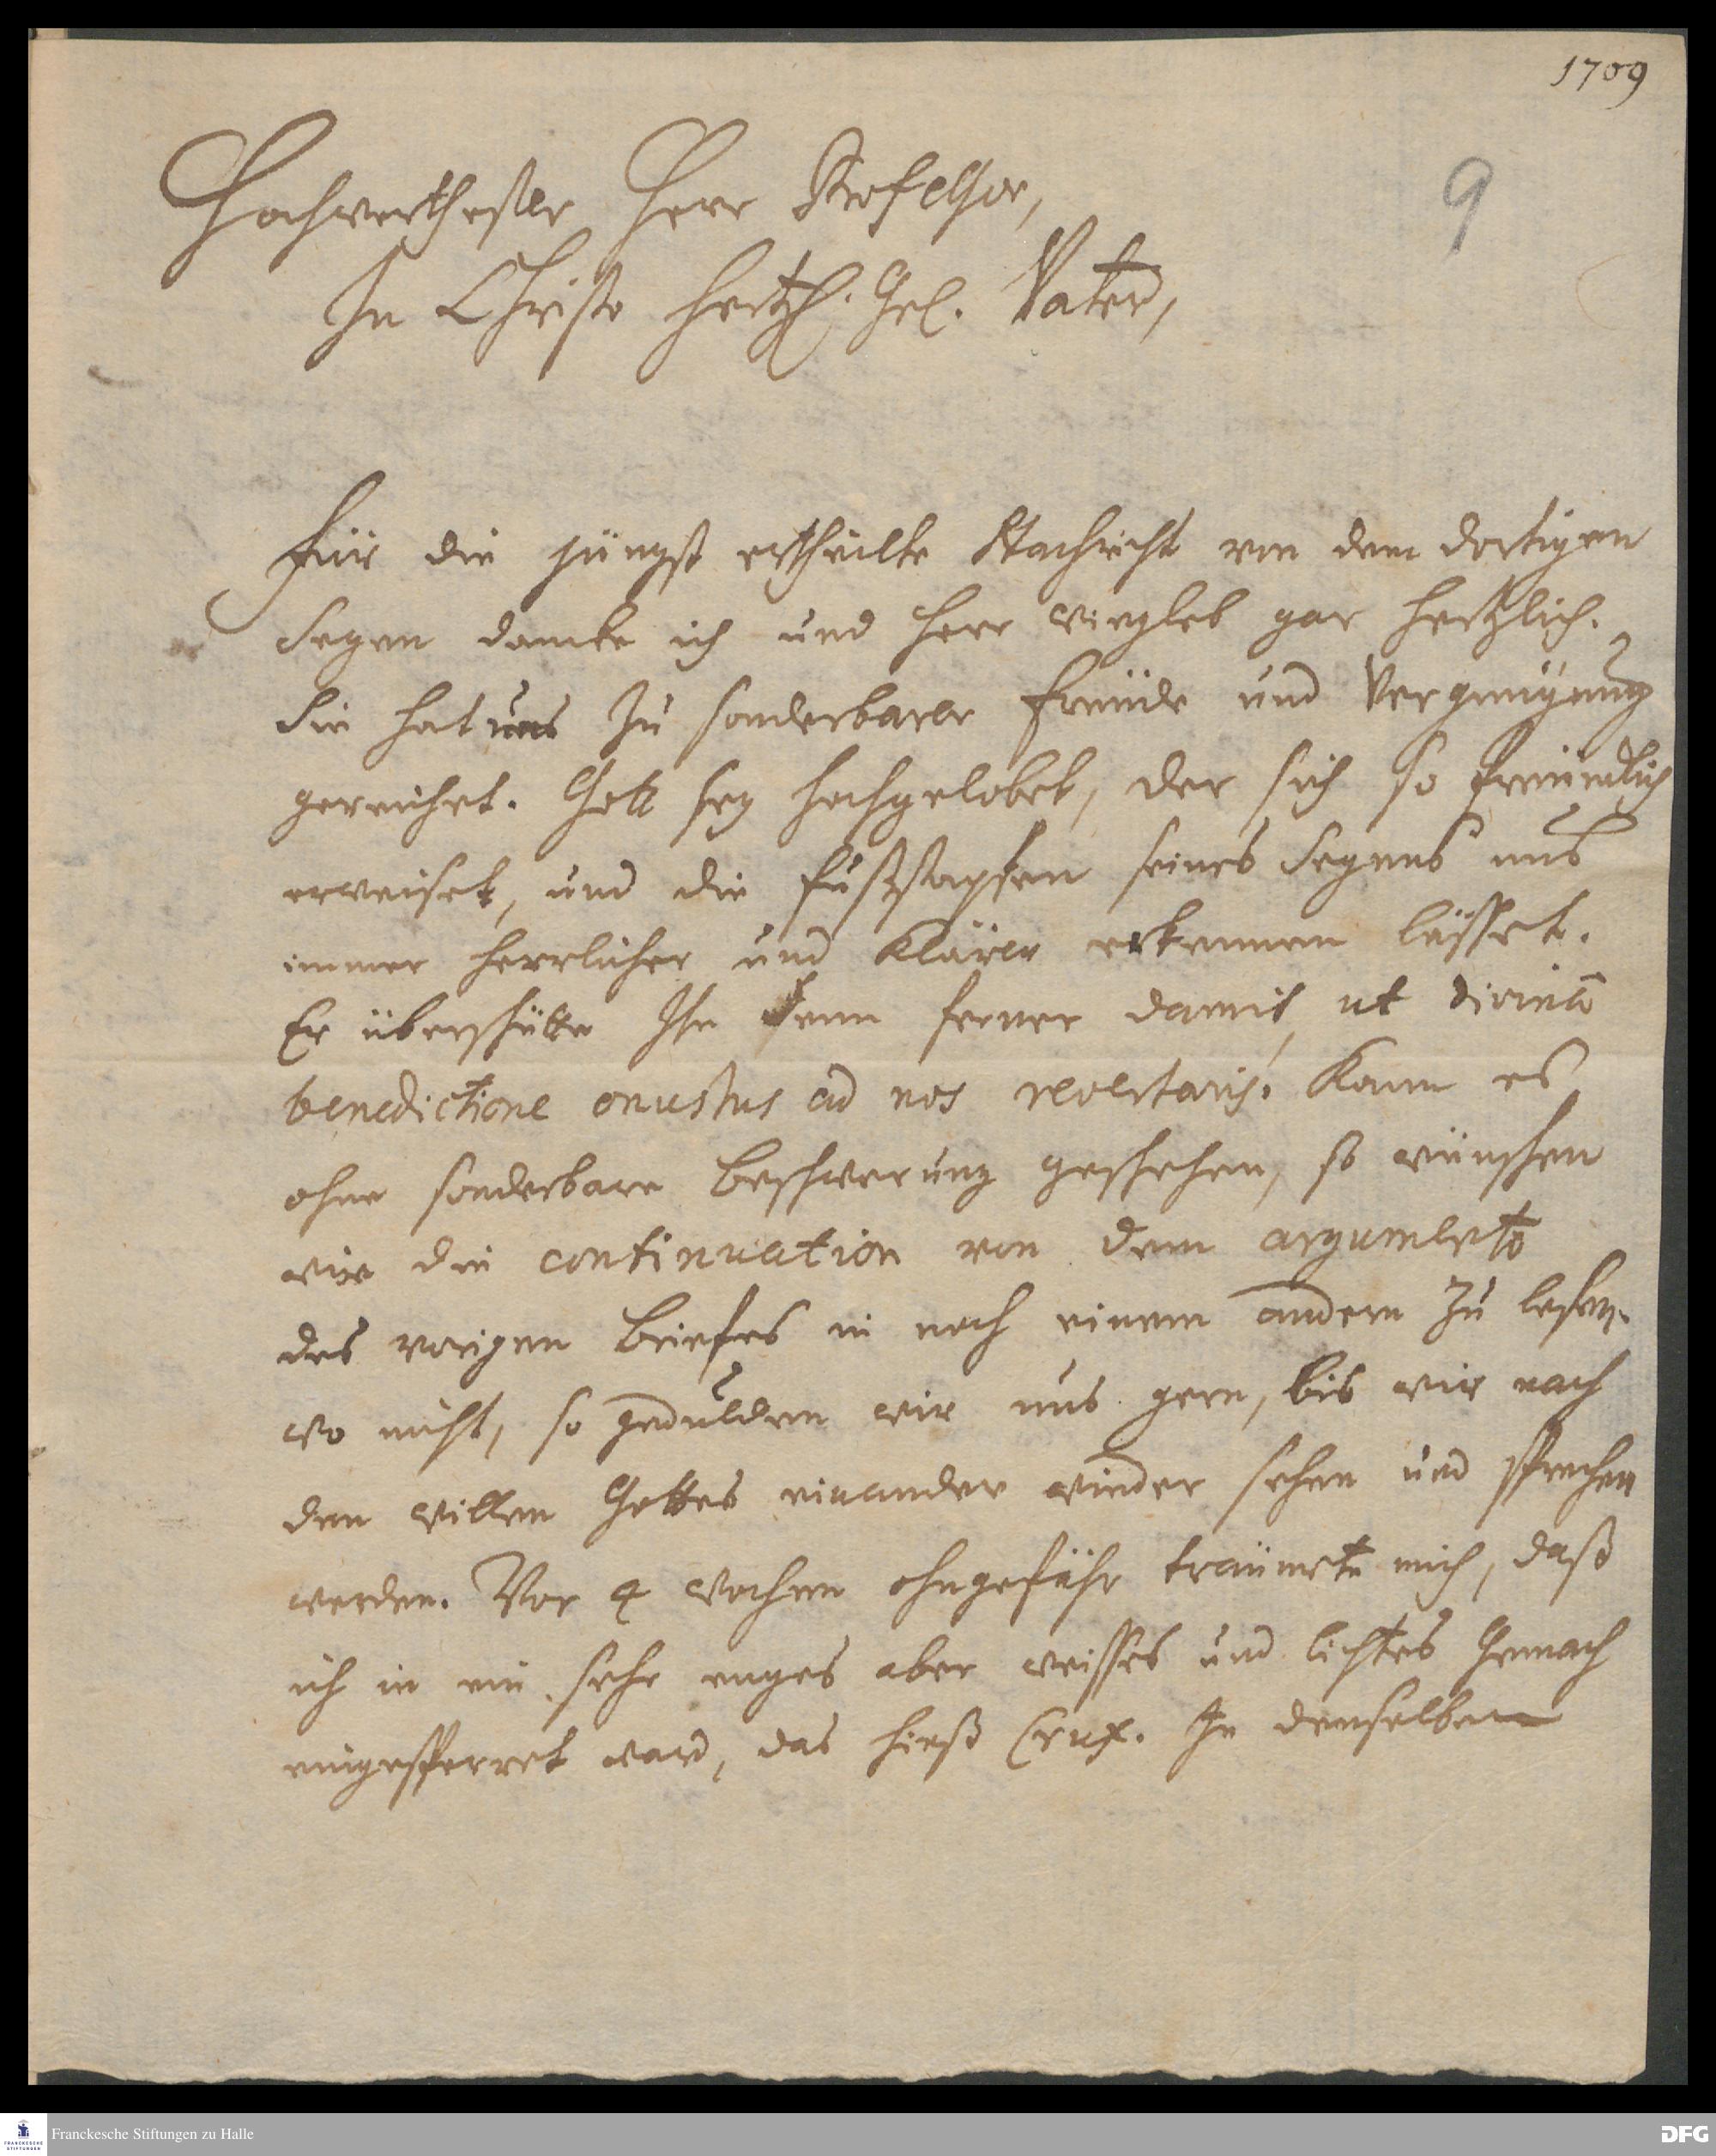 1709
9
Hochwerthester Herr Professor,
In Christo hertzl. Gel. Vater,
Für die jüngst ertheilte Nachricht von dem dortigen
Segen dancke ich und Herr Wiegleb gar hertzlich.
Sie hat uns zu sonderbarer Freude und Vergnügung
gereichet. Gott sey hochgelobet, der sich so freundlich
erweiset, und die Fußstapfen seines Segens uns
immer herrlicher und klärer erkennen lässet.
Er überschütte Ihn denn ferner damit, ut divina
benedictione onustus ad nos revertaris. Kann es
ohne sonderbare Beschwerung geschehen, so wünschen
wir die continuation von dem argumento
des vorigen Briefes in noch einem andern zu lesen.
Wo nicht, so gedulden wir uns gern, bis wir nach
den Willen Gottes einander wieder sehen und sprechen
werden. Vor 4 Wochen ohngefähr träumete mich, daß
ich in ein sehr enges aber weisses und lichtes Gemach
eingesperret ward, das hieß Crux. In demselben
Franckesche Stiftungen zu Halle
DFG